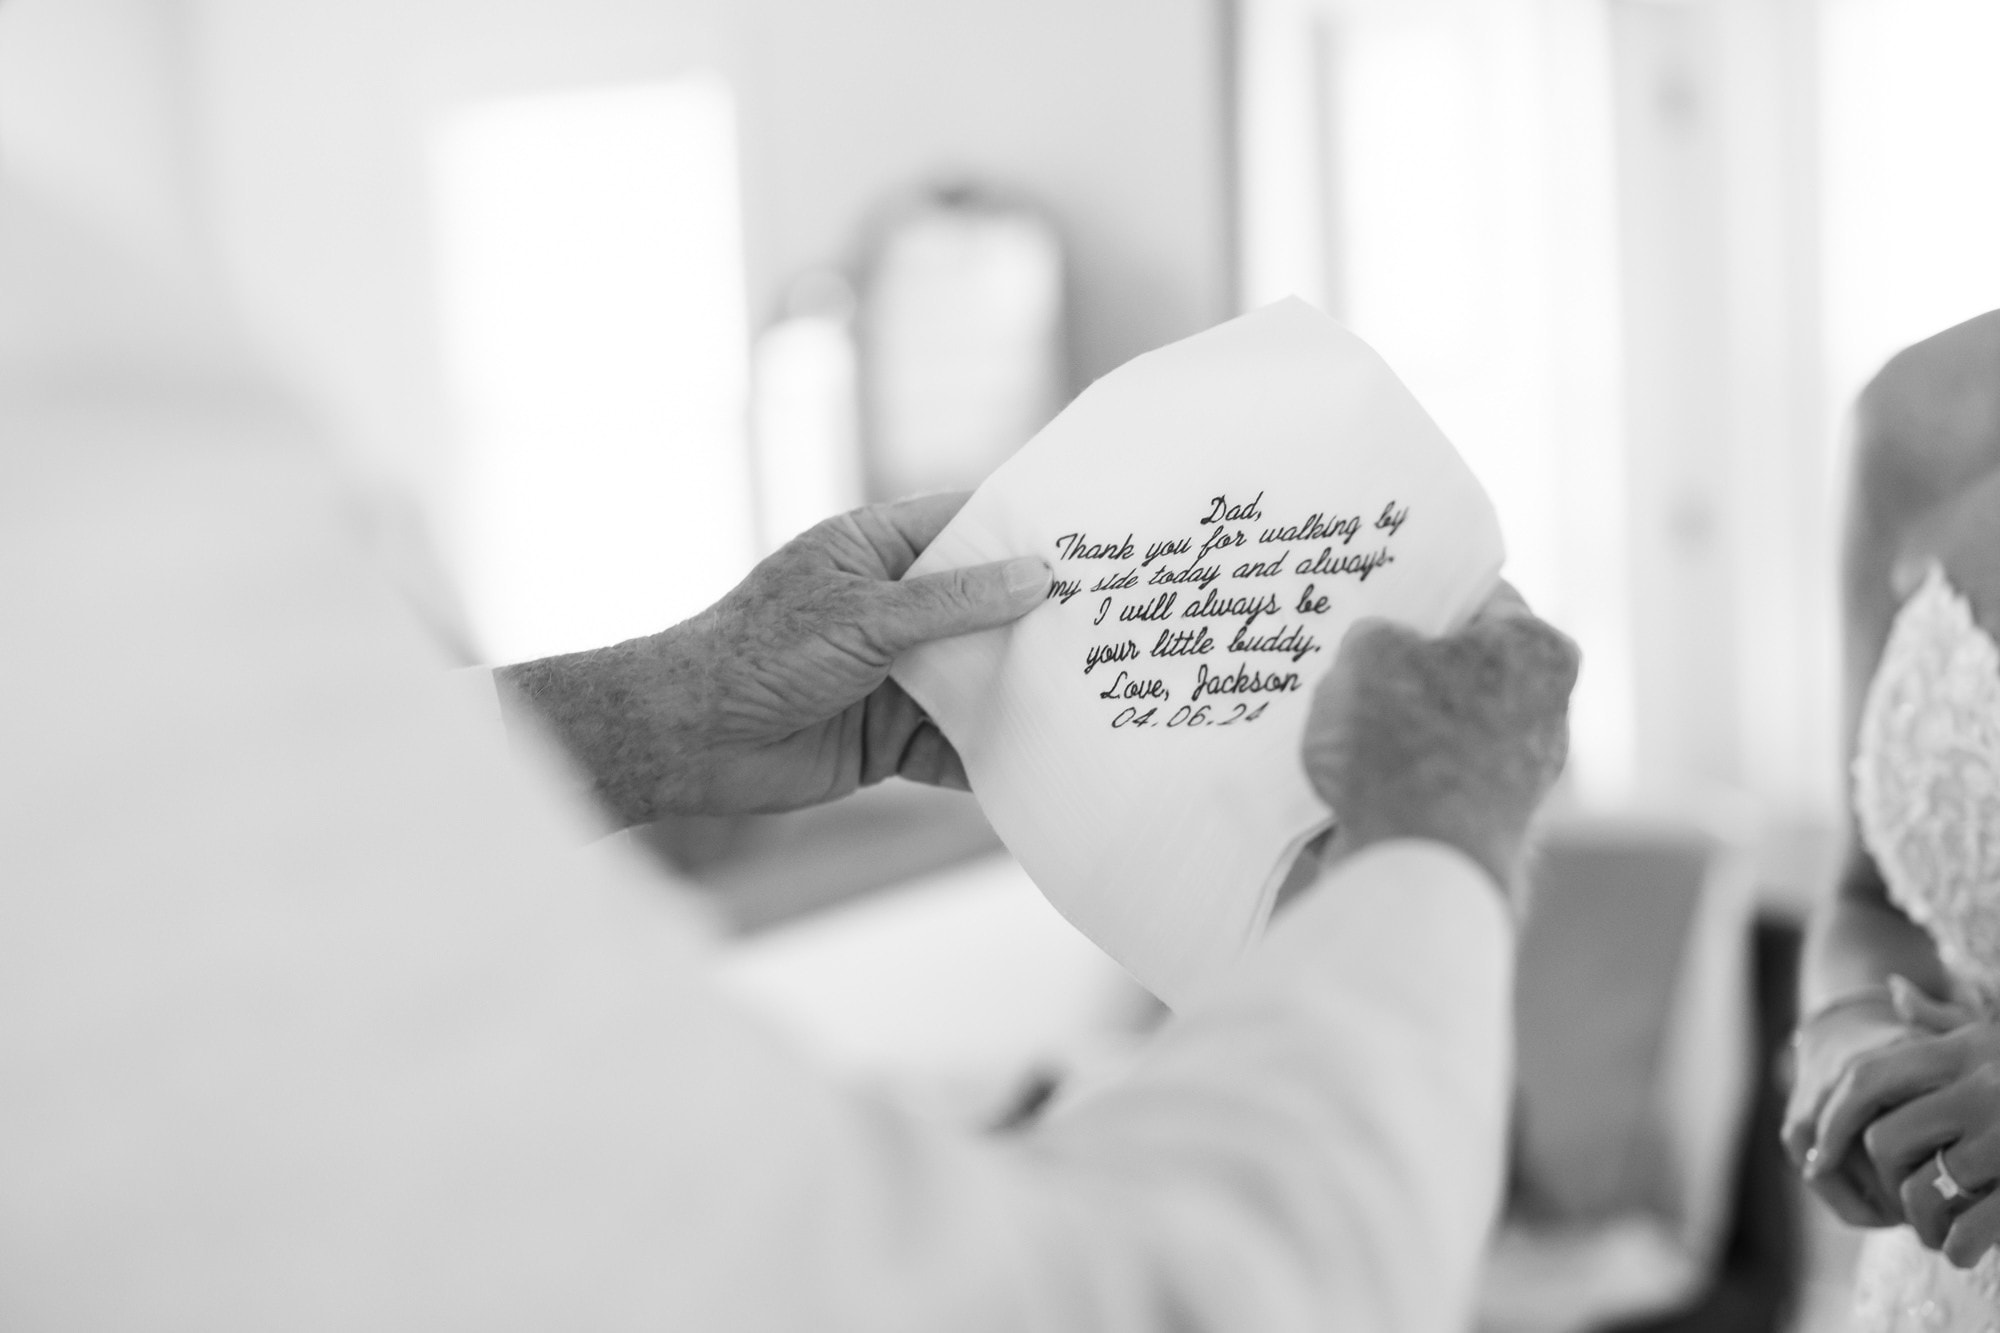 Dad,
Thank you for walking by
my side today and always.
I will always be
your little buddy.
Love, Jackson
04.06.24